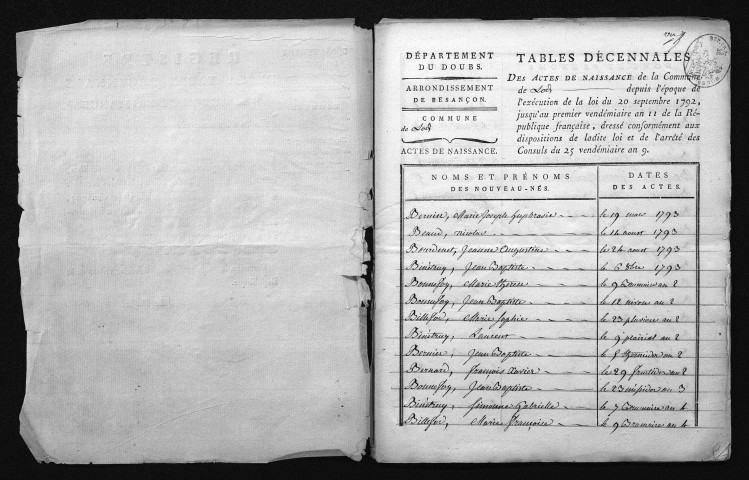 DÉPARTEMENT
DU DOUBS.
ARRONDISSEMENT
DE BESANÇON.
COMMUNE
de Lods
ACTES DE NAISSANCE.
TABLES DÉCENNALES
DES ACTES DE NAISSANCE de la Commune
de Lods depuis l'époque de
l'exécution de la loi du 20 septembre 1792,
jusqu'au premier vendémiaire an 11 de la Ré-
publique française, dressé conformément aux
dispositions de ladite loi et de l'arrêté des
Consuls du 25 vendémiaire an 9.
NOMS ET PRÉNOMS
DES NOUVEAU-NÉS.
DATES
DES ACTES.
Bernier, Marie Joseph Euphrasie le 19 mars 1793
nicolas le 14 aoust 1793
Bourdenet, Jeanne Augustine le 24 aoust 1793
Binétruy, Jean Baptiste le 6 8bre 1793
Bonnefoy, Marie Therese le 9 Brumaire an 2
Bonnefoy, Jean Baptiste le 12 nivose an 2
Billefod, Marie Sophie le 23 pluviose an 2
Binétruy, Laurent le 9 prairial an 2
Bernier, Jean Baptiste le 8 thermidor an 2
Bernard, françois Xavier le 29 fructidor an 2
Bonnefoy, Jean Baptiste le 23 messidor an 3
Binétruy, Simonne Gabrielle le 7 Brumaire an 4
Billefod, Marie françoise le 9 Brumaire an 4